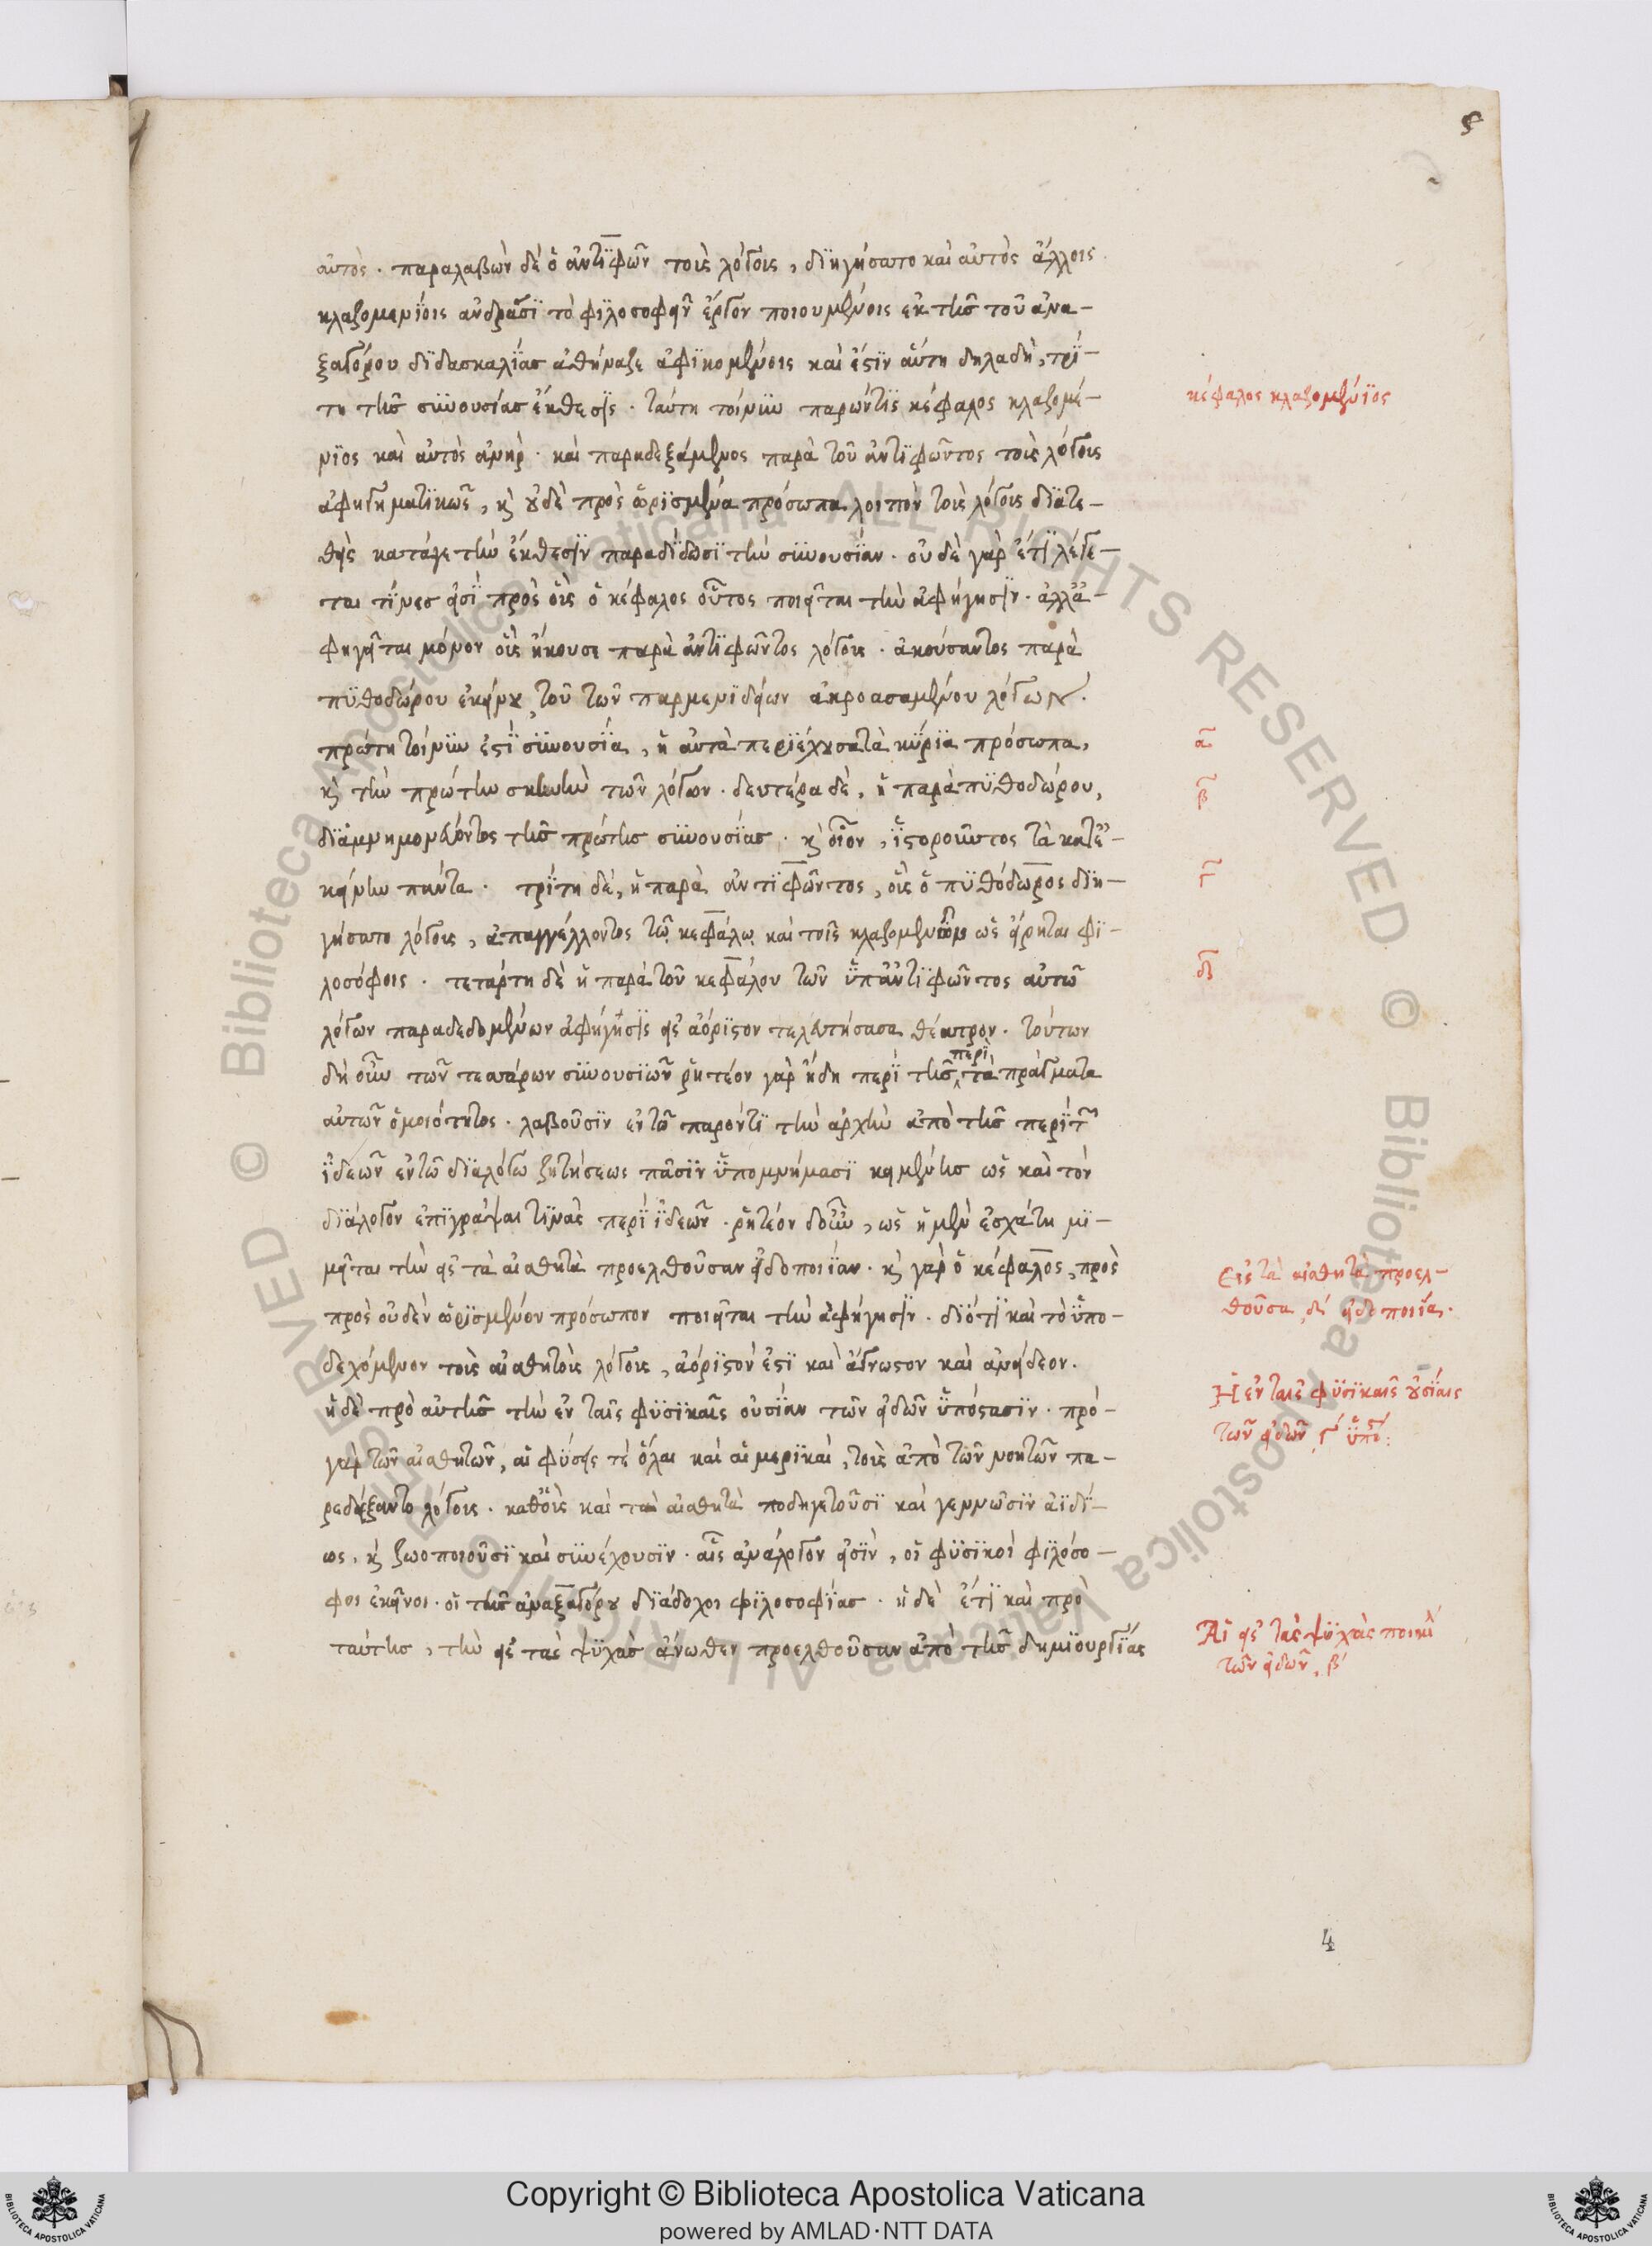 αὐτὸς. παραλαβὼν δὲ ὁ ἀντιφῶν τοὺς λόγους, διηγήσατο καὶ αὐτὸς ἄλλοις
κλαζομενίοις ἀνδράσι τὸ φιλοσοφεῖν ἔργον ποιουμένοις ἐκ τῆς τοῦ ἀνα-
ξαγόρου διδασκαλίας ἀθήναζε ἀφικομένοις καὶ ἔστιν αὕτη δηλαδὴ, τρί-
τη τῆς συνουσίας ἔκθεσις. ταύτη τοίνυν παρών τις κέφαλος κλαζομέ-
νιος καὶ αὐτὸς ἀνὴρ. καὶ παραδεξάμενος παρὰ τοῦ ἀντιφῶντος τοὺς λόγους
ἀφηγηματικῶς, καὶ οὐδὲ πρὸς ὡρισμένα πρόσωπα λοιπὸν τοὺς λόγους διατε-
θεὶς τὴν ἔκθεσιν παραδίδωσι τὴν συνουσίαν. οὐδὲ γὰρ ἔτι λέγε-
ται τίνες εἰσὶ πρὸς οὓς ὁ κέφαλος οὗτος ποιεῖται τὴν ἀφήγησιν. ἀλλ' ἀ-
φηγεῖται μόνον οὓς ἤκουσε παρὰ ἀντιφῶντος λόγους. ἀκούσαντος παρὰ
πυθοδώρου ἐκείνου τοῦ τῶν παρμενιδείων ἀκροασαμένου λόγων.
πρώτη τοίνυν ἐστὶ συνουσία, ἡ αὐτὰ περιέχουσα τὰ κύρια πρόσωπα,
καὶ τὴν πρώτην σκηνὴν τῶν λόγων. δευτέρα δὲ, ἡ παρὰ πυθοδώρου,
διαμνημονεύοντος τῆς πρώτης συνουσίας. καὶ οἷον, ἱστοροῦντος τὰ κατ' ἐ-
κείνην πάντα. τρίτη δὲ, ἡ παρὰ ἀντιφῶντος, οὓς ὁ πυθόδωρος διη-
γήσατο λόγους, ἀπαγγέλλοντος τῷ κεφάλῳ καὶ τοῖς ὡς εἴρηται φι-
λοσόφοις. τετάρτη δὲ ἡ παρὰ τοῦ κεφάλου τῶν ὑπ' ἀντιφῶντος αὐτῷ
λόγων παραδεδομένων ἀφήγησις εἰς ἀόριστον τελευτήσασα θέατρον. τούτων
δὴ οὖν τῶν τεσσάρων συνουσιῶν ῥητέον γὰρ ἤδη περὶ τῆς περὶ τὰ πράγματα
αὐτῶν ὁμοιότητος. λαβοῦσιν ἐν τῷ παρόντι τὴν ἀρχὴν ἀπὸ τῆς περὶ τῶν
ἰδεῶν ἐν τῷ διαλόγῳ ζητήσεως πᾶσιν ὑπομνήμασι κειμένης ὡς καὶ τὸν
διάλογον ἐπιγράψαι τινὰς περὶ ἰδεῶν. ῥητέον δ' οὖν, ὡς ἡ μὲν ἐσχάτη μι-
μεῖται τὴν εἰς τὰ αἰσθητὰ προελθοῦσαν εἰδοποιίαν. καὶ γὰρ ὁ κέφαλος, πρὸς
πρὸς οὐδὲν ὡρισμένον πρόσωπον ποιεῖται τὴν ἀφήγησιν. διότι καὶ τὸ ὑπο-
δεχόμενον τοὺς αἰσθητοὺς λόγους, ἀόριστόν ἐστι καὶ ἄγνωστον καὶ ἀνείδεον.
ἡ δὲ πρὸ αὐτῆς τὴν ἐν ταῖς φυσικαῖς οὐσίαν τῶν εἰδῶν ὑπόστασιν. πρὸ
γὰρ τῶν αἰσθητῶν, αἱ φύσεις τε ὅλαι καὶ αἱ μερικαὶ, τοὺς ἀπὸ τῶν νοητῶν πα-
ρεδέξαντο λόγους. καθ' οὓς καὶ τὰ αἰσθητὰ ποδηγετοῦσι καὶ γεννῶσιν ἀϊδί-
ως, καὶ ζωοποιοῦσι καὶ συνέχουσιν. αἷς ἀνάλογον εἰσὶν, οἱ φυσικοὶ φιλόσο-
φοι ἐκεῖνοι. οἱ τῆς ἀναξαγόρου διάδοχοι φιλοσοφίας. ἡ δὲ ἔτι καὶ πρὸ
ταύτης, τὴν εἰς τὰς ψυχὰς ἄνωθεν προελθοῦσαν ἀπὸ τῆς δημιουργίας
κέφαλος κλαζομένιος
α
β
γ
δ
Εἰς τὰ αἰσθητὰ προελ-
θοῦσα, δ' εἰδοποιία.
Ἡ ἐν ταῖς φυσικαῖς οὐσίαις
τῶν εἰδῶν γ' ὑπό
Αἱ εἰς τὰς ψυχὰς ποικιλ
τῶν εἰδῶν, β'
4
Copyright © Biblioteca Apostolica Vaticana
powered by AMLAD·NTT DATA